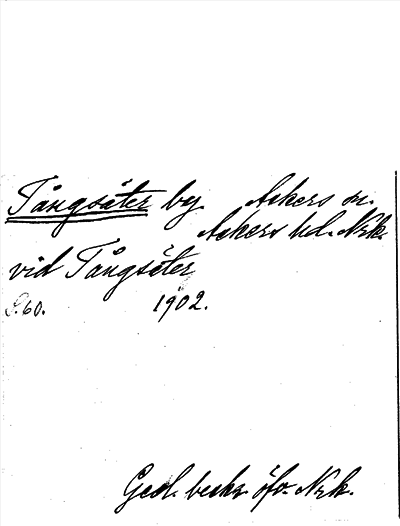 Tångsäter by. Askers sn.
Askers hd. Nrk.
vid Tångsäter
S. 60. 1902.
Geol. beskr. öfv. Nrk.